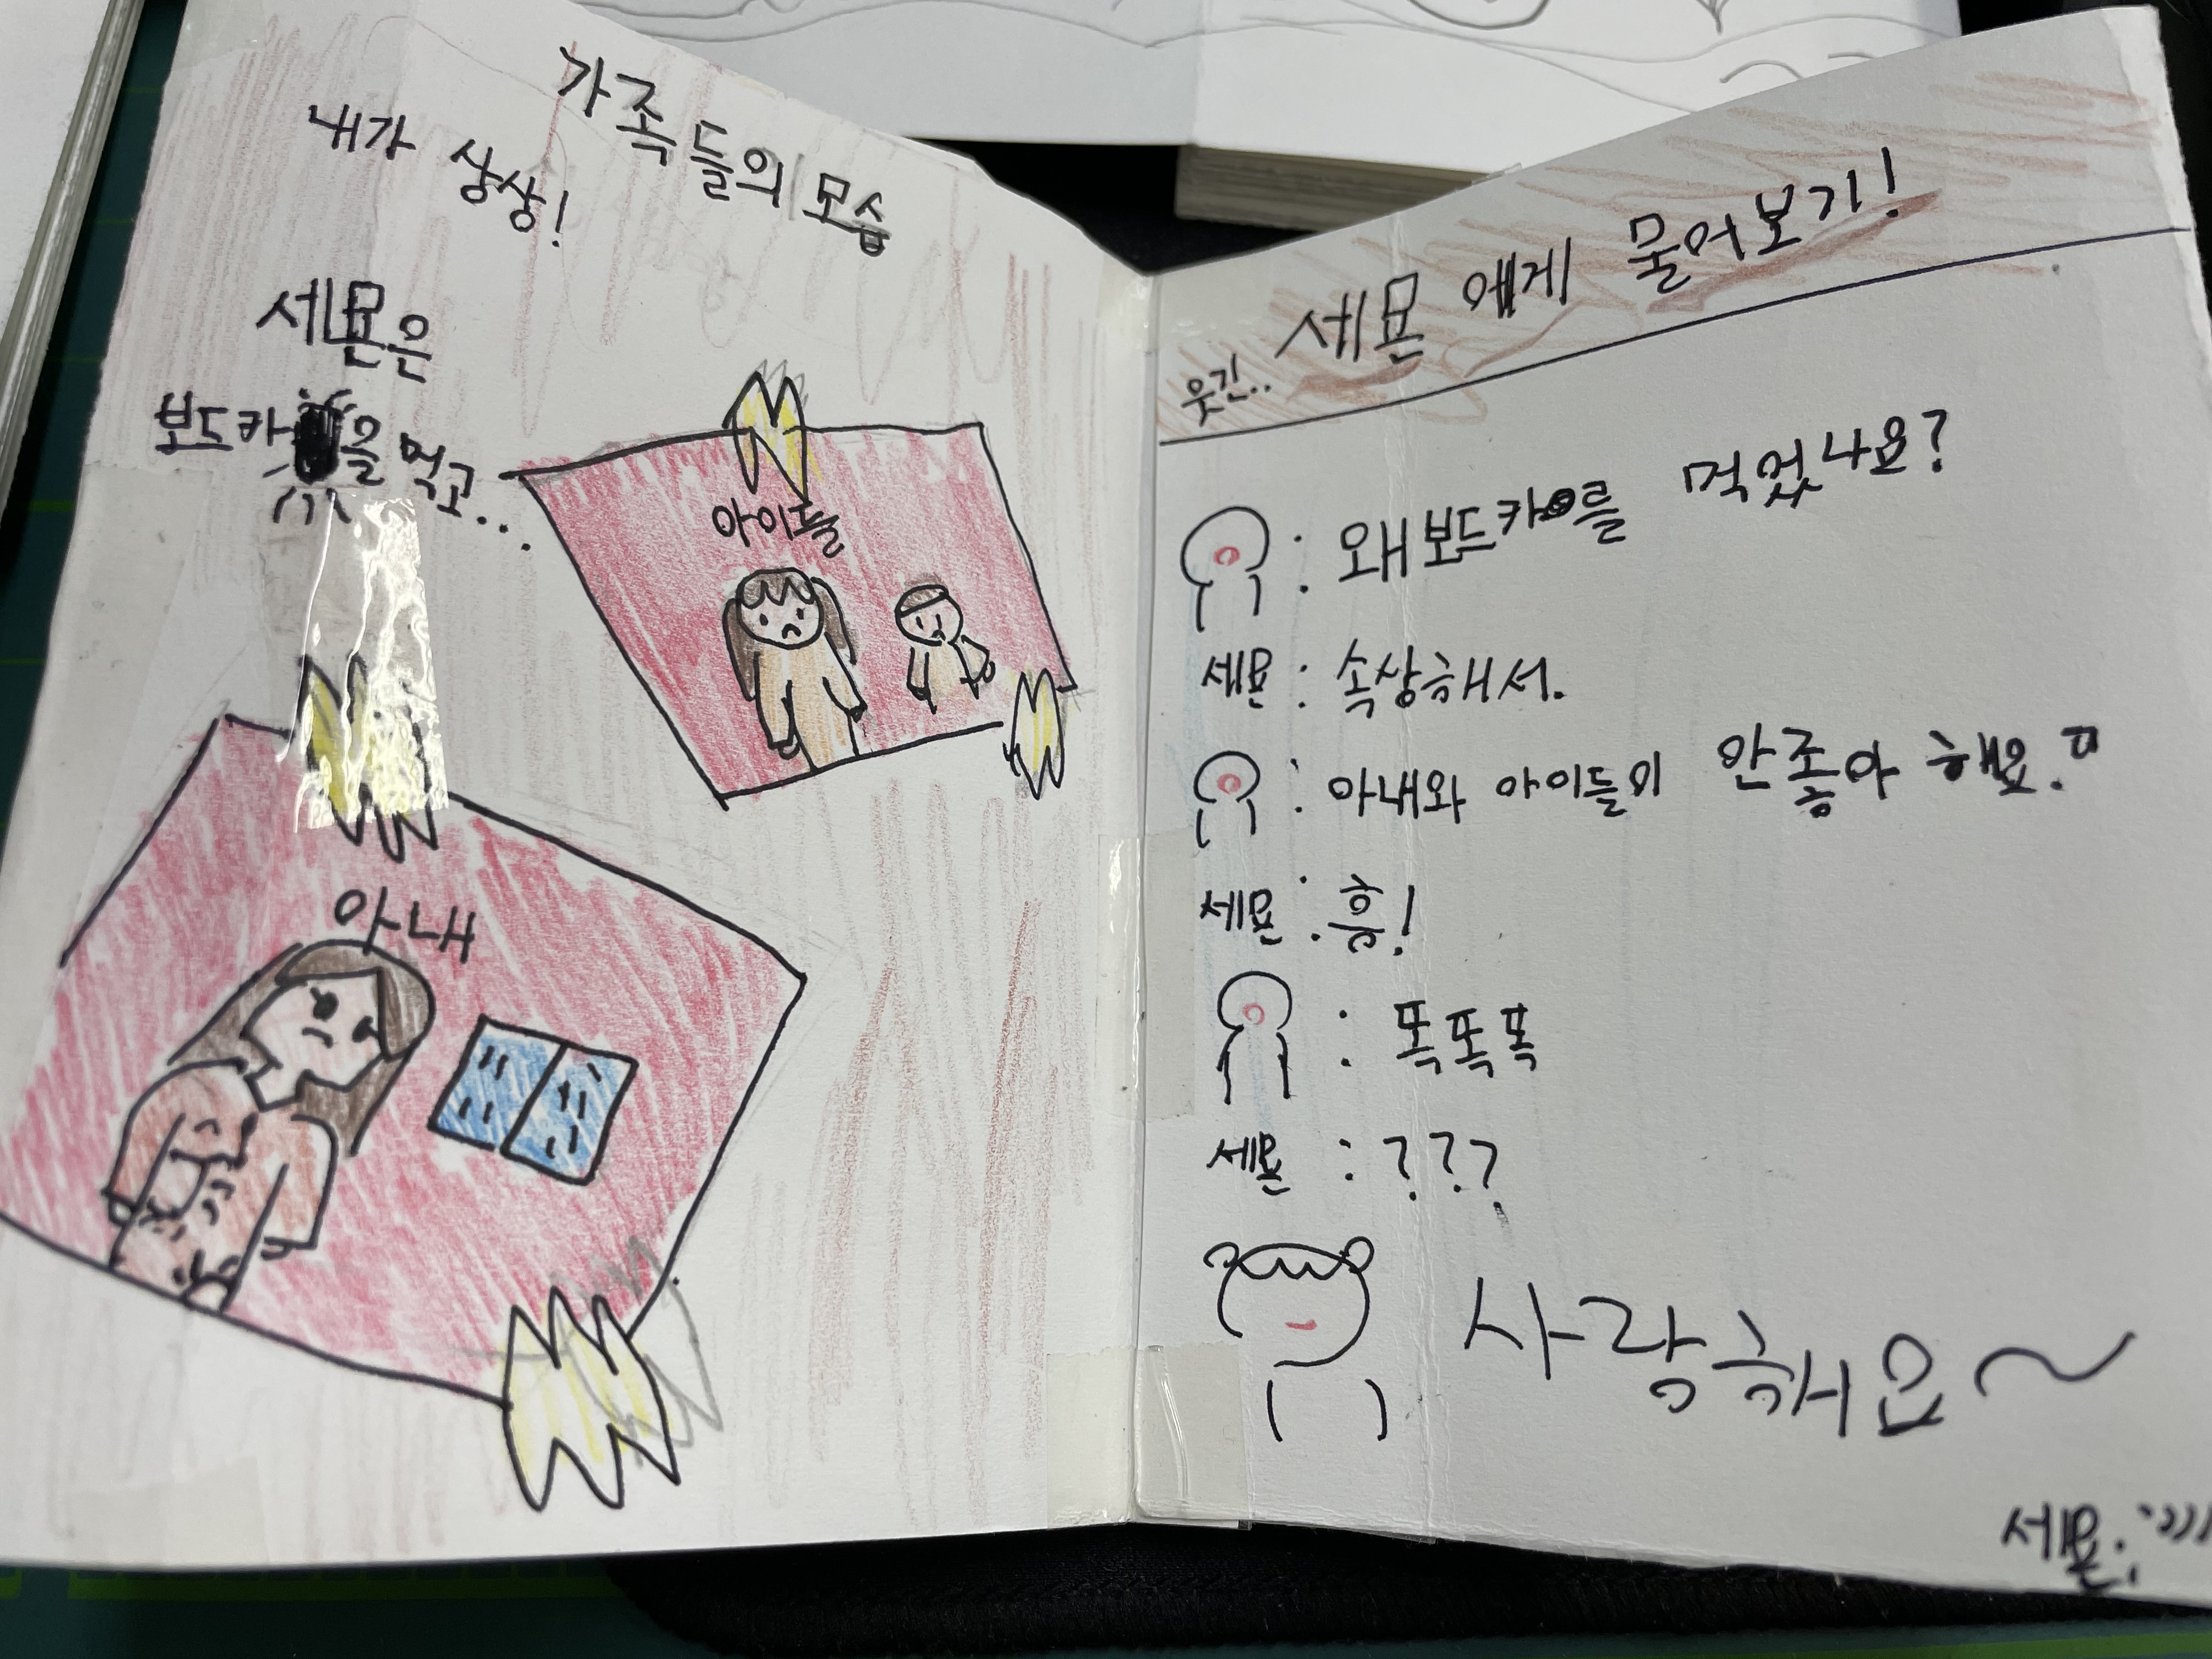 가족들의 모습
내가 상상!
세묜은
보드카을 먹고..
아이들
아내
웃긴.. 세묜에게 물어보기!
: 왜 보드카를 먹었나요?
세묜 : 속상해서.
: 아내와 아이들이 안좋아 해요.
세묜 : 흥!
: 똑똑똑
세묜 : ???
사랑해요~
세묜: